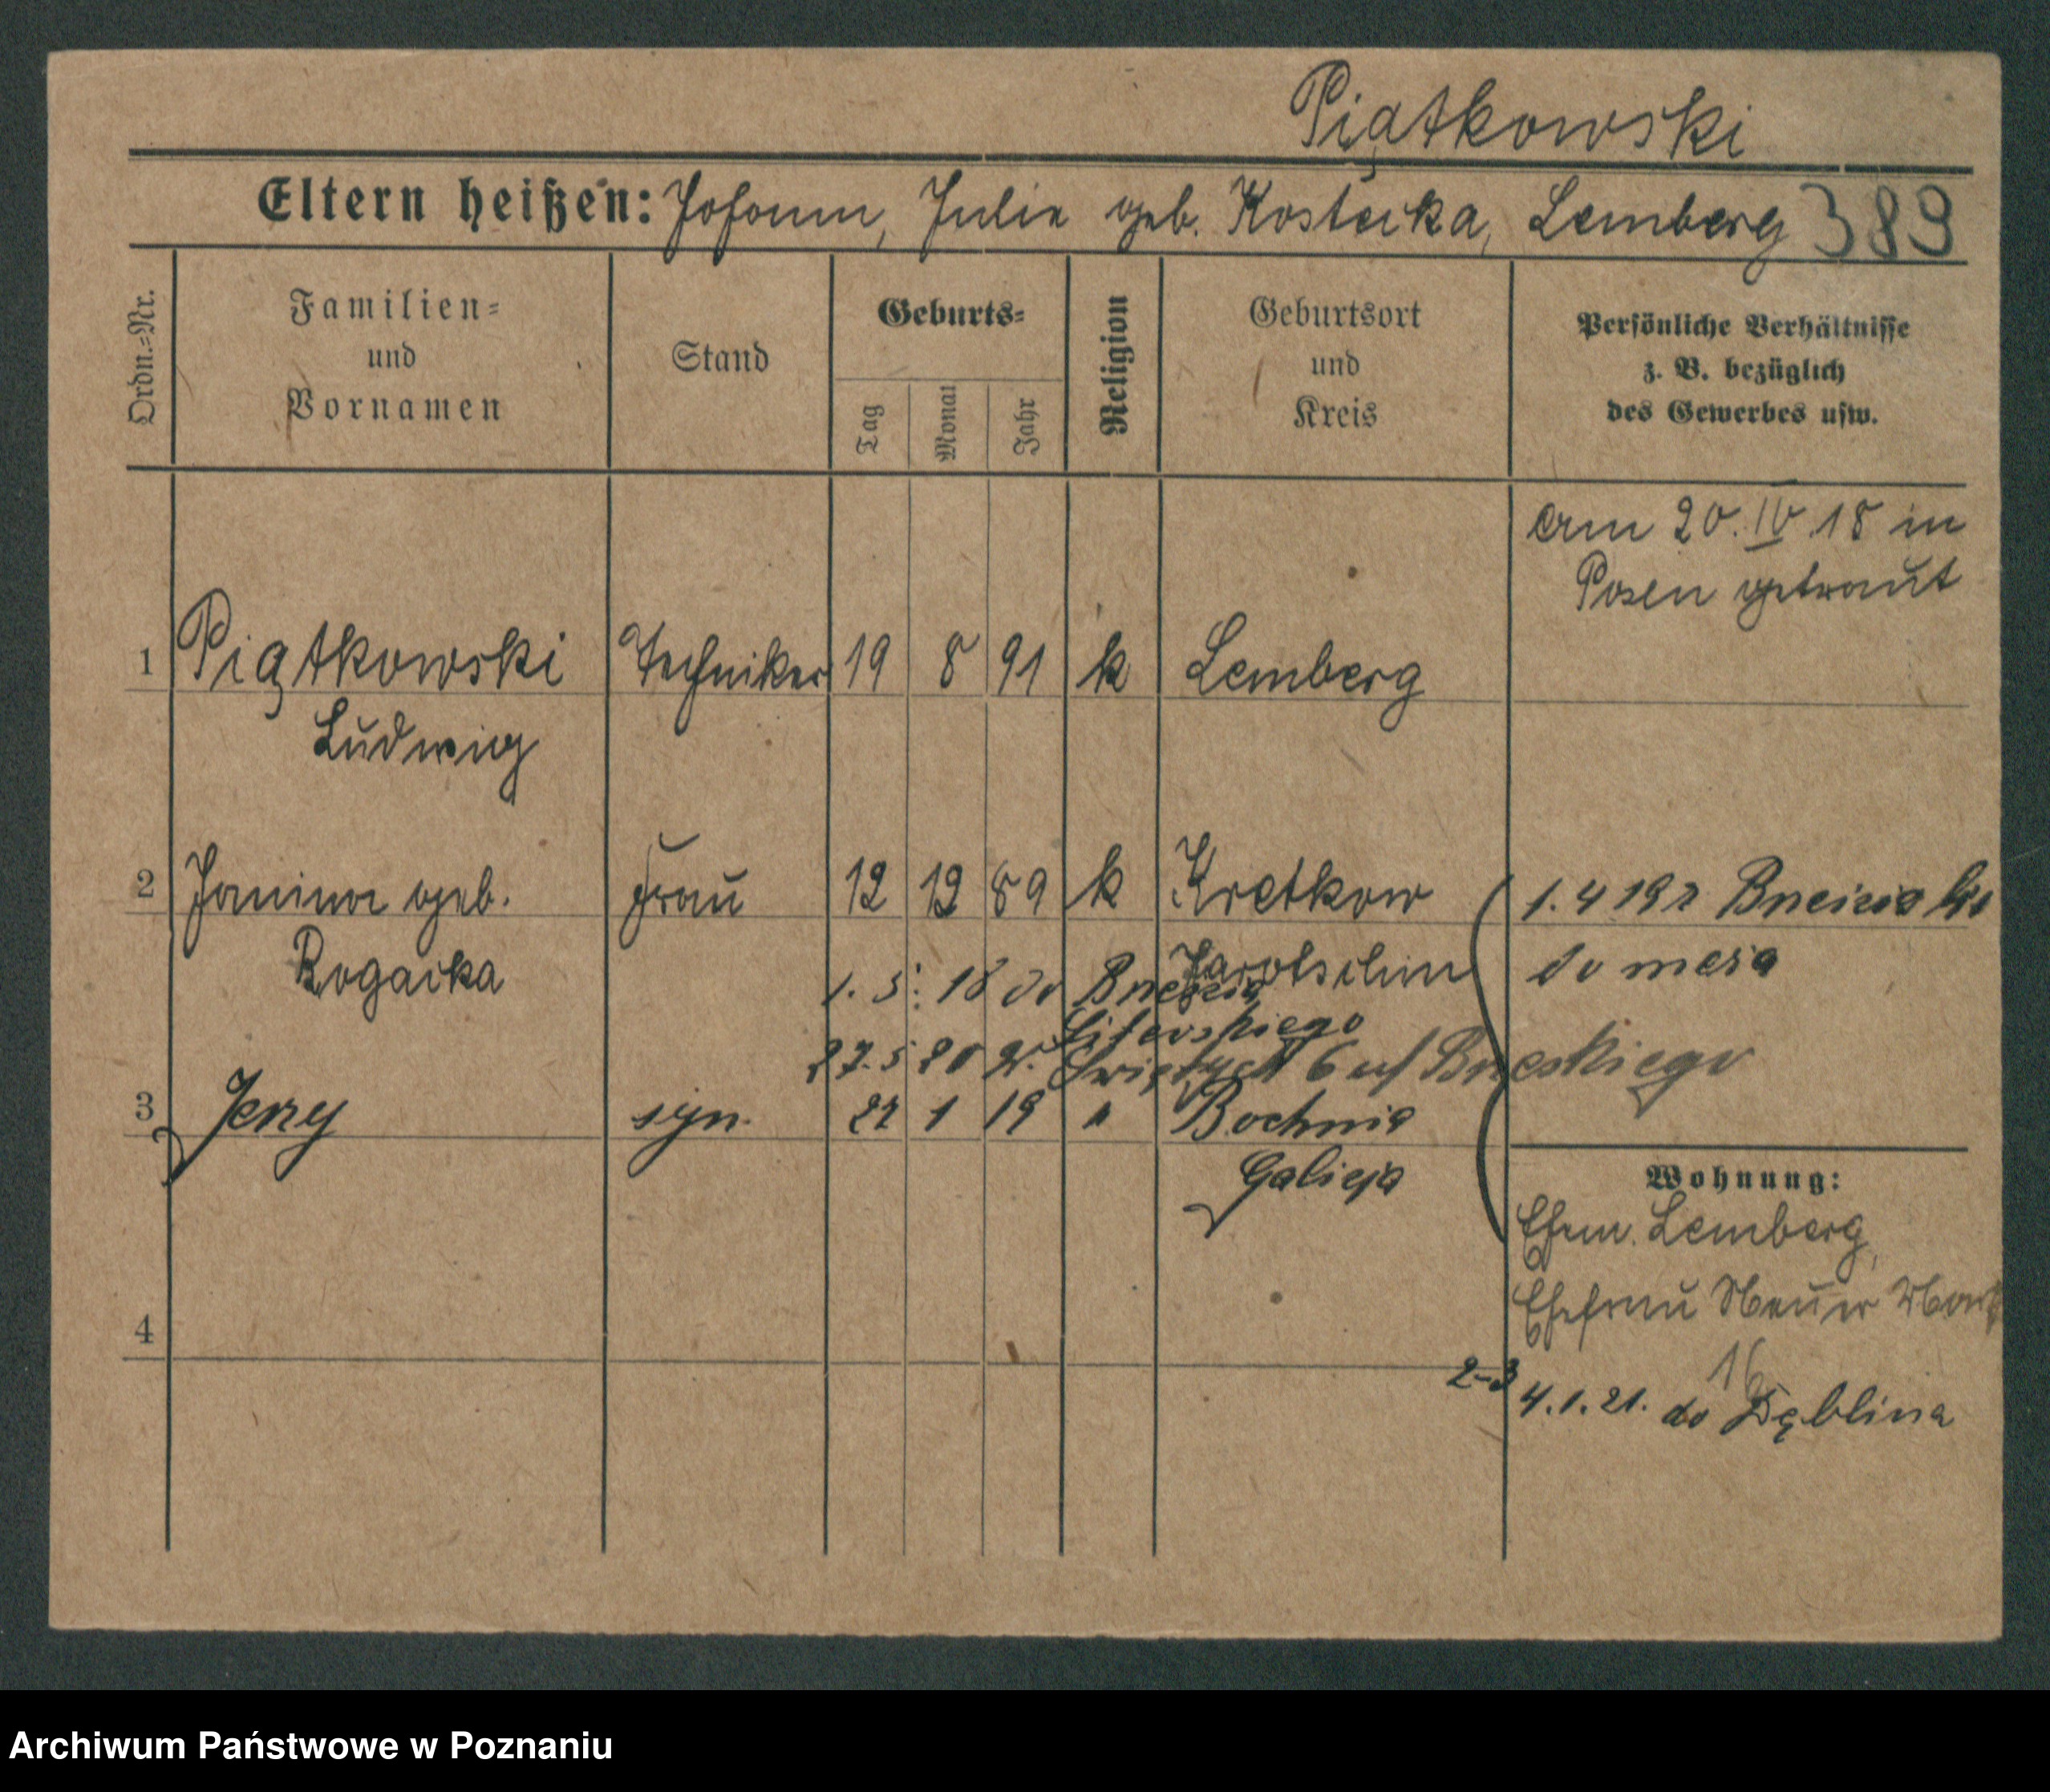 Piątkowski
Eltern heißen: Johann, Julia geb. Kostecka, Lemberg 389
Ordn.-Nr.
Familien-
und
Vornamen
Stand
Geburts-
Tag
Monat
Jahr
Religion
Geburtsort
und
Kreis
Persönliche Verhältnisse
z. B. bezüglich
des Gewerbes usw.
am 20. IV. 18 in
Posen getraut
1 Piątkowski Techniker 19 8 91 k Lemberg
Ludwig
2 Janina geb. Frau 12 12 89 k Kretkow
Rogacka Jarotschin
1. 5. 18 do
Litevskiego
27. 5 20
3 Jerzy syn. 1 19 " Bochnia
Galicja
1. 4
do męża
Wohnung:
Ehem. Lemberg,
Ehefrau Neuer Markt
16
4
2-3 4.1.21. do Dęblina
Archiwum Państwowe w Poznaniu